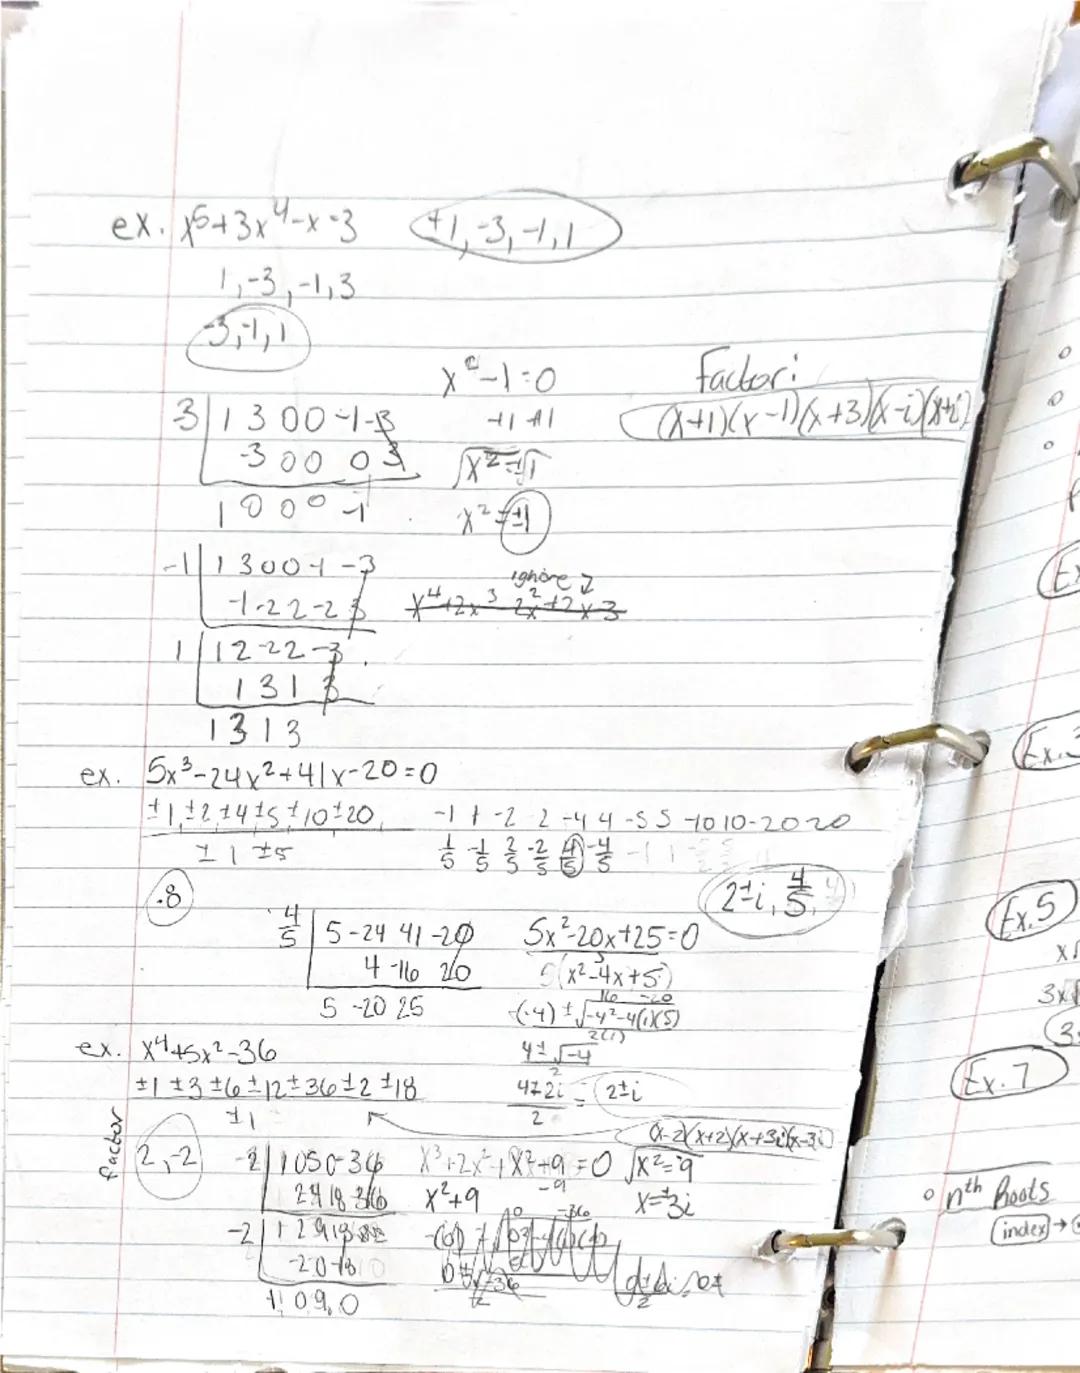 ex. x^5+3x^4-x-3 +1,-3,-1,1
1,-3,-1,3
-3,-1,1
x^2-1=0
+1 +1
√x^2=±√1
x^2=±1
Factor:
(x+1)(x-1)(x+3)(x-i)(x+i)
3| 1 3 0 0 -1 -3
-3 0 0 0 3
1 0 0 0 -1
-1| 1 3 0 0 -1 -3
-1 -2 2 -2 3
ignore
x^4+2x^3 2x^2+2x-3
1| 1 2 -2 2 -3
1 3 1 3
1 3 1 3
ex. 5x^3-24x^2+41x-20=0
±1,±2,±4±5±10±20 -1 1 -2 2 -4 4 -5 5 -10 10 -20 20
±1 ±5
1/5 -1/5 2/5 -2/5 4/5 -4/5
.8
2±i, 4/5,
4/5| 5 -24 41 -20
4 -16 20
5 -20 25
5x^2-20x+25=0
5(x^2-4x+5)
16 -20
-(-4)±√-4^2-4(1)(5)
2(1)
4±√-4
2
4±2i = 2±i
2
ex. x^4+5x^2-36
±1 ±3 ±6 ±12 ±36 ±2 ±18
±1
(x-2)(x+2)(x+3i)(x-3i)
factor
2,-2
-2| 1 0 5 0 -36
2 4 18 36
x^3+2x^2+ x^2+9=0
-9
√x^2=-9
x^2+9
x=±3i
-2| 1 2 9 18
-2 0 -18 0
1 0 9 0
Ex.5
Ex.7
nth Roots
index →